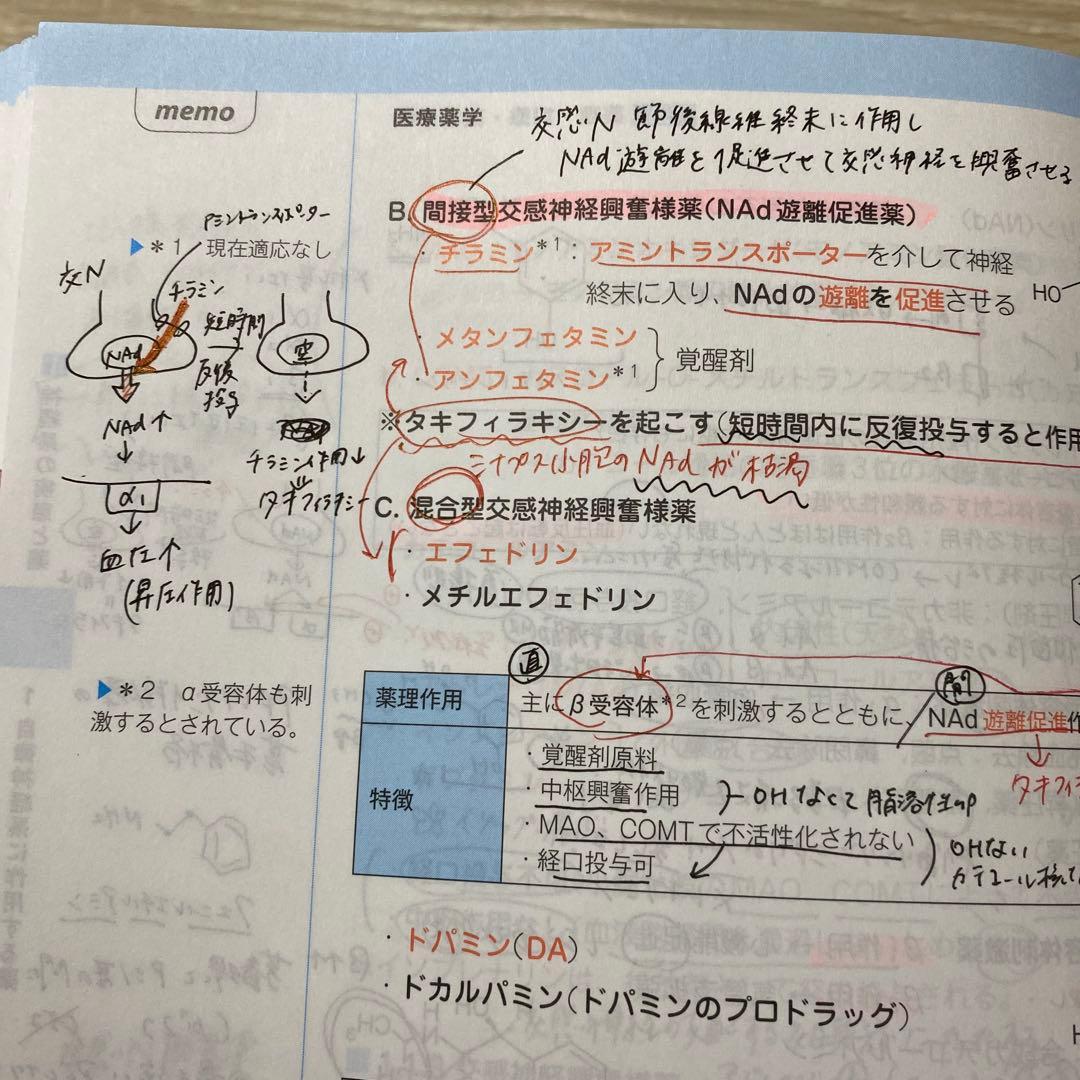 memo
医療薬学
交感N 節後線維終末に作用し
NAd遊離を促進させて交感神経を興奮させる
B. 間接型交感神経興奮様薬(NAd遊離促進薬)
・チラミン*1：アミントランスポーターを介して神経
終末に入り、NAdの遊離を促進させる
・メタンフェタミン
・アンフェタミン*1
覚醒剤
※タキフィラキシーを起こす(短時間内に反復投与すると作用
シナプス小胞のNAdが枯渇
C. 混合型交感神経興奮様薬
・エフェドリン
・メチルエフェドリン
アミントランスポーター
▶*1 現在適応なし
交N
チラミン
NAd
短時間
反復
投与
空
NAd↑
チラミン作用↓
タキフィラキシー
α1
血圧↑
(昇圧作用)
▶*2 α受容体も刺
激するとされている。
直
間
薬理作用
主にβ受容体*2を刺激するとともに、NAd遊離促進作
特徴
・覚醒剤原料
・中枢興奮作用
OHなくて脂溶性up
・MAO、COMTで不活性化されない
・経口投与可
OHない
タキフィラ
・ドパミン(DA)
・ドカルパミン(ドパミンのプロドラッグ)
HO